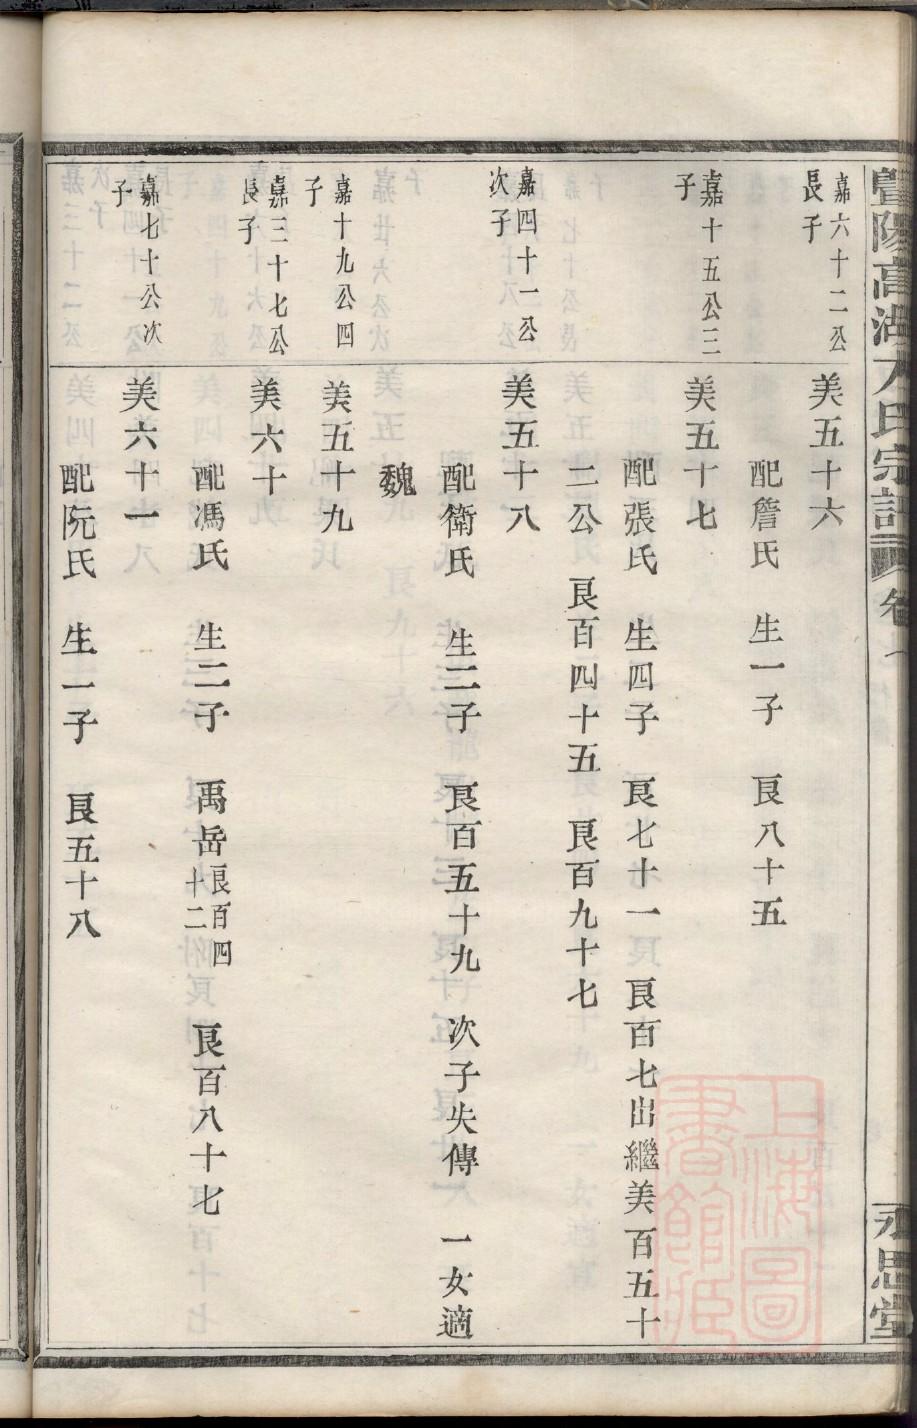 暨陽高湖方氏宗譜 卷
永思堂
嘉六十二公
長子
美五十六
配詹氏 生一子 良八十五
嘉十五公三
子
美五十七
配張氏 生四子 良七十一 良百七出繼美百五十
二公 良百四十五 良百九十七
嘉四十一公
次子
美五十八
配衛氏 生二子 良百五十九 次子失傳 一女適
魏
嘉十九公四
子
美五十九
嘉三十七公
長子
美六十
配馮氏 生二子 禹岳良百四十二 良百八十七
嘉七十公次
子
美六十一
配阮氏 生一子 良五十八
上海圖
書館藏